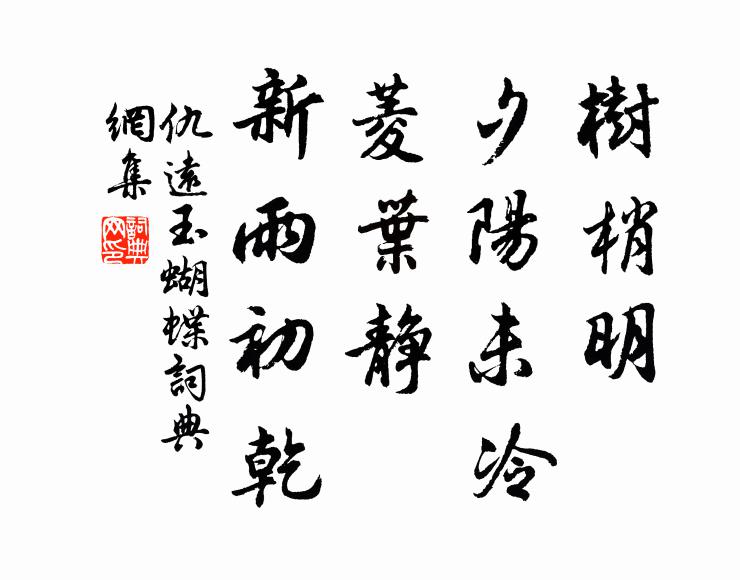 樹梢明
夕陽未冷
菱葉靜
新雨初乾
仇遠玉蝴蝶詞典
網集
詞典
网印